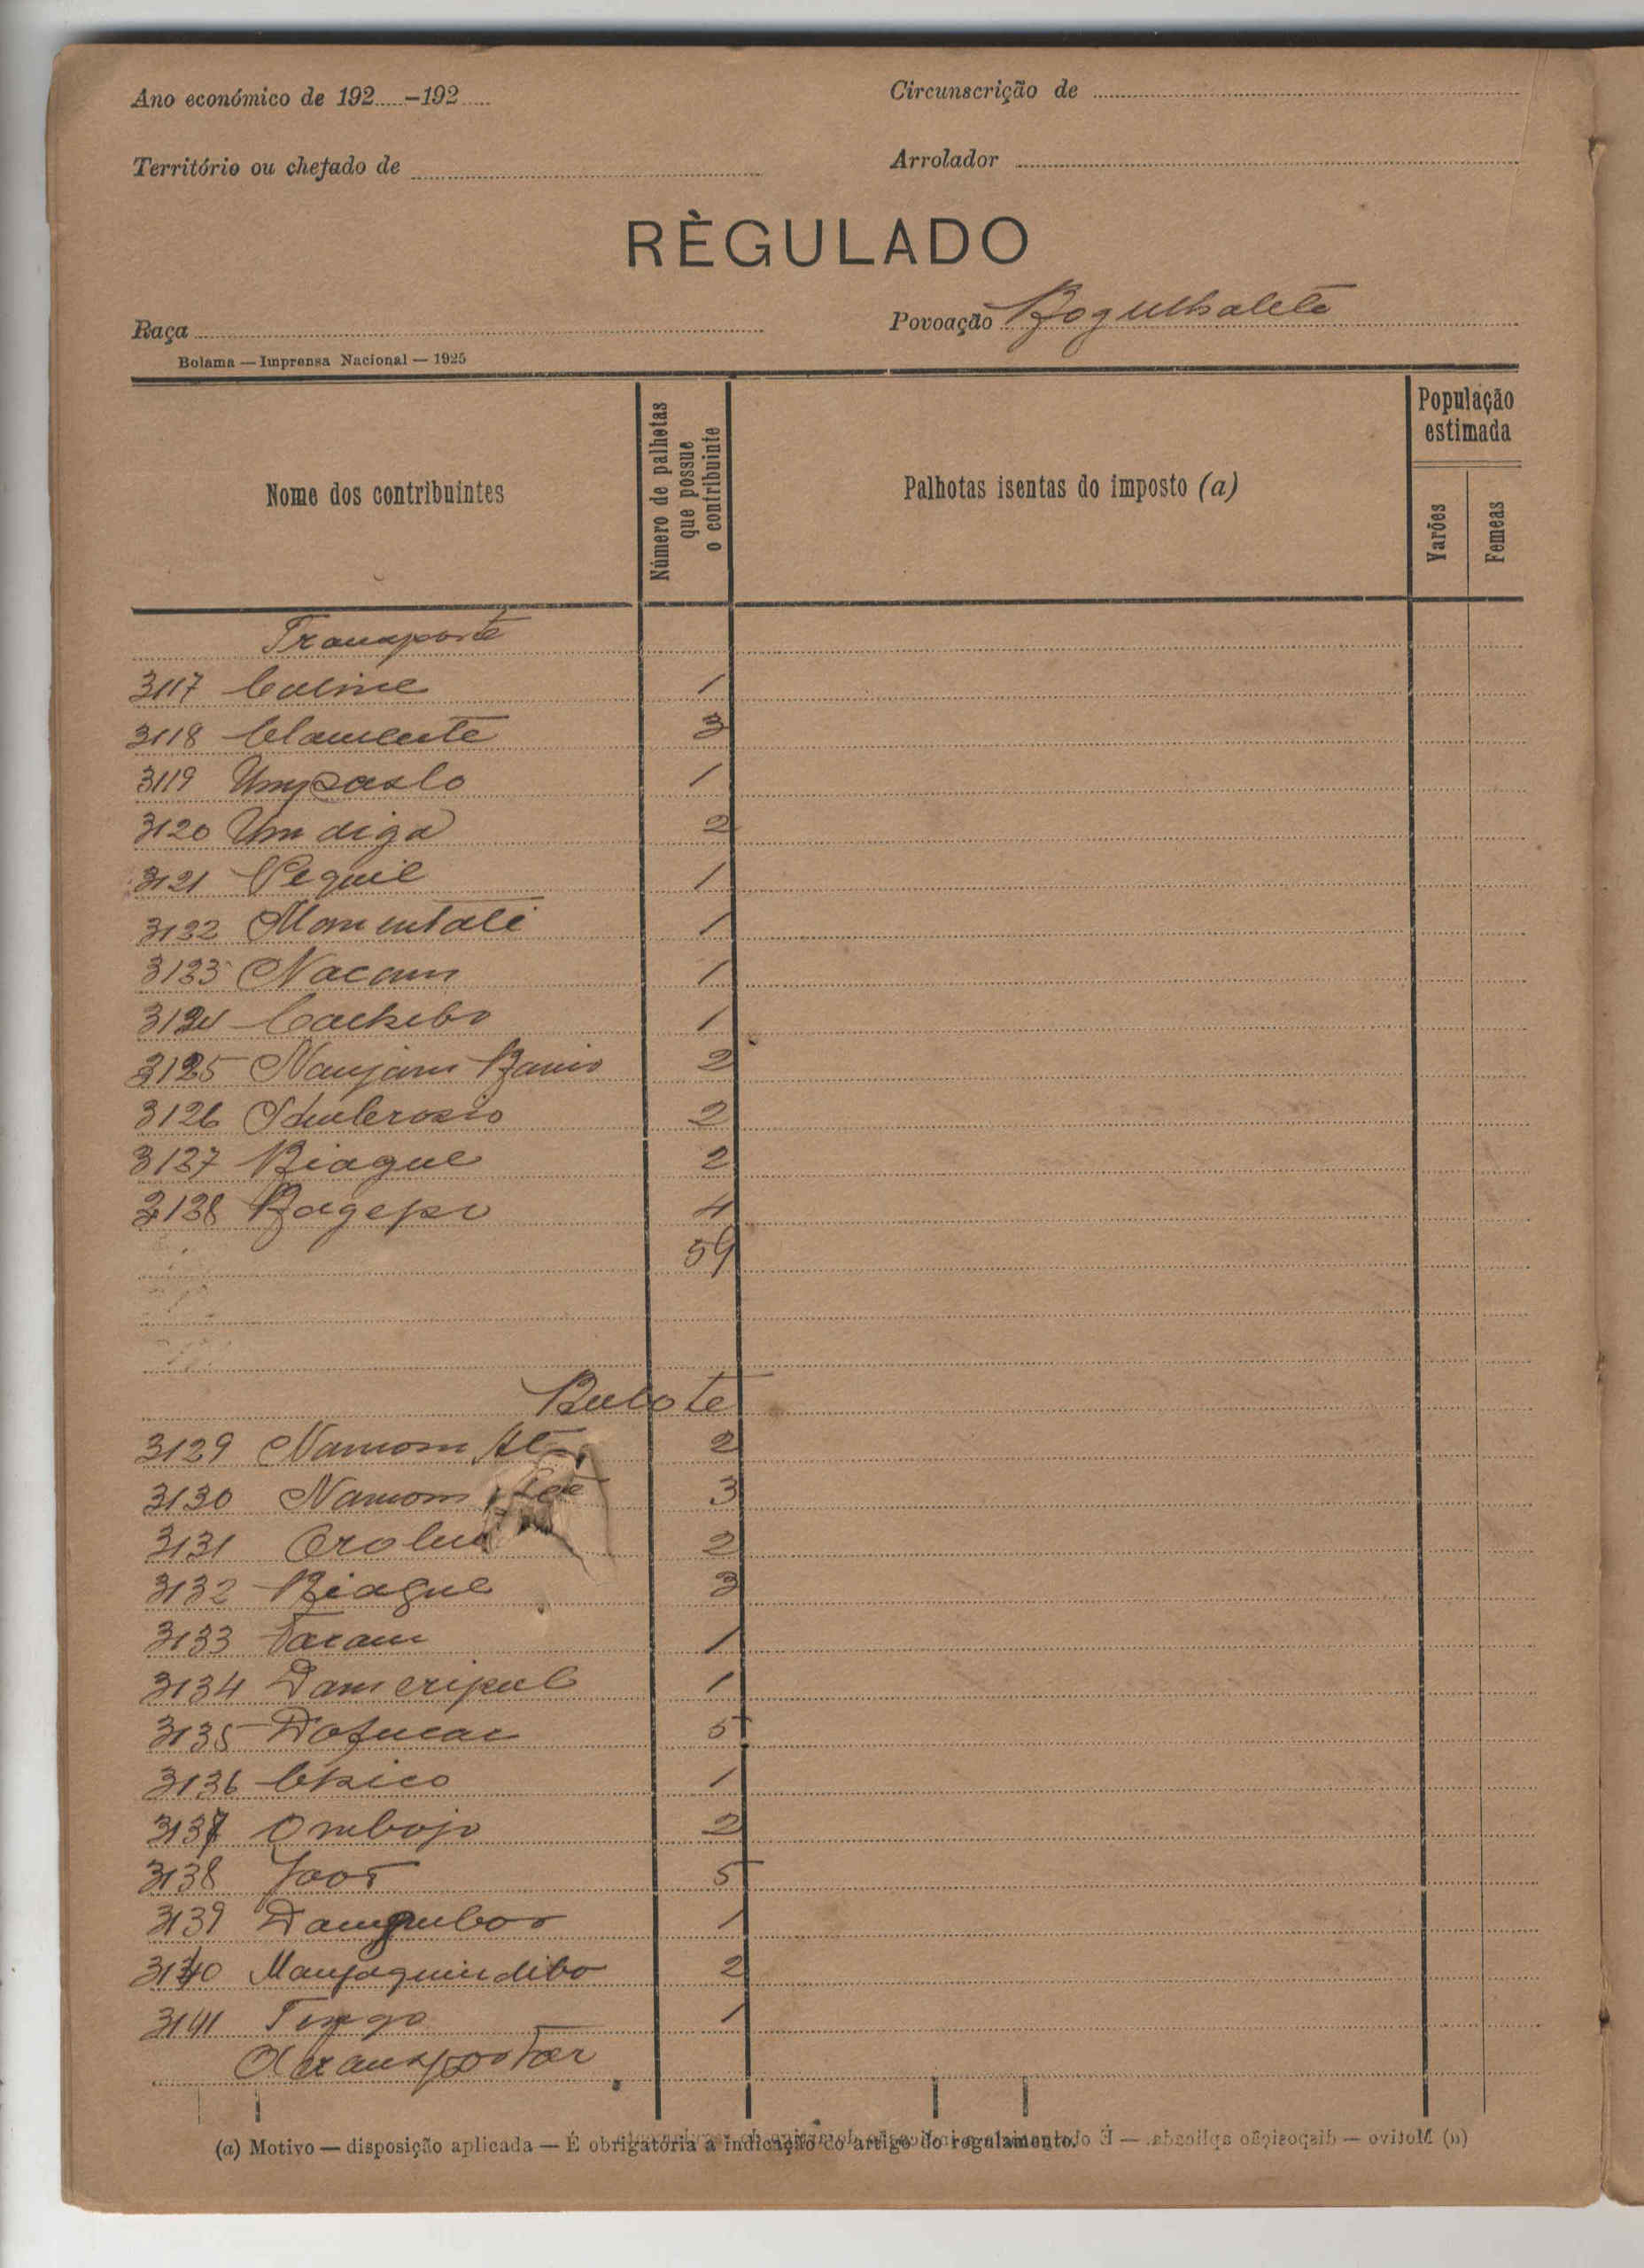 Ano económico de 192.....-192.....
Circunscrição de
Território ou chefado de
Arrolador
RÈGULADO
Raça
Povoação Bogulhalete
Bolama — Imprensa Nacional — 1925
Nome dos contribuintes
Número de palhotas que possue o contribuinte
Palhotas isentas do imposto (a)
População estimada
Varões
Femeas
Transporte
3117 Caline 1
3118 Clamente 3
3119 Umpaslo 1
3120 Um diga 2
3121 Pequil 1
3122 Momentali 1
3123 Nacam 1
3124 Cachebo 1
3125 Naujam Banio 2
3126 Ambrosio 2
3127 Biague 2
3128 Bagepo 4
59
Bulote
3129 Namom 2
3130 Namom 3
3131 2
3132 Biague 3
3133 1
3134 Dameripul 1
3135 Dofucac 5
3136 Chico 1
3137 Ombojo 2
3138 Joor 5
3139 1
3140 Manjaquindibo 2
3141 1
A transportar
(a) Motivo — disposição aplicada — É obrigatória a indicação do artigo do regulamento.